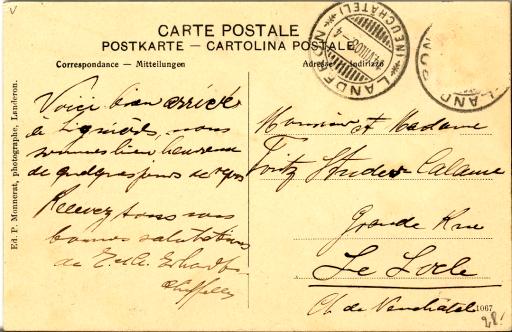 CARTE POSTALE
POSTKARTE – CARTOLINA POSTALE
Correspondance — Mitteilungen
Adresse — Indirizzo
LANDERON
(NEUCHATEL)
LAND
Ed. P. Monnerat, photographe, Landeron.
Voici bien arrivé
à Lignières, nous
sommes bien heureuse
de quelques jours de repos
Recevez tous nos
bonnes salutations
de E. et A.
Monsieur et Madame
Fritz Studer Calame
Grande Rue
Le Locle
Ct de Neuchâtel
1067